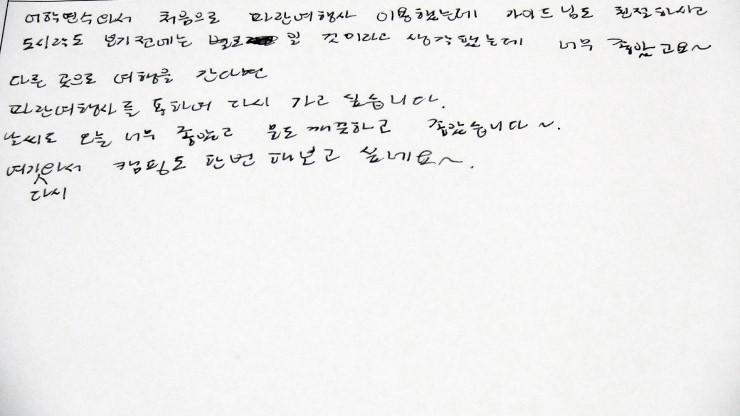 어학연수와서 처음으로 파란여행사 이용했는데 가이드님도 친절하시고
도시락도 보기전에는 별로일 것이라고 생각했는데 너무 좋았고요~
다른 곳으로 여행을 간다면
파란여행사를 통하여 다시 가고 싶습니다.
날씨도 오늘 너무 좋았고 물도 깨끗하고 좋았습니다~.
여기와서 캠핑도 한번 해보고 싶네요~.
다시